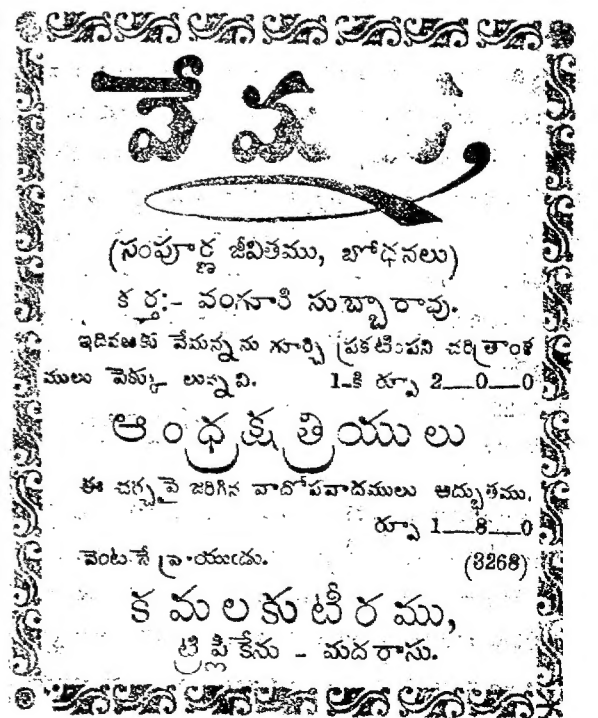 వేమన
(సంపూర్ణ జీవితము, బోధనలు)
కర్త:- వంగూరి సుబ్బారావు.
ఇదివఱకు వేమన్నను గూర్చి ప్రకటింపని చరిత్రాంశ
ములు పెక్కు లున్నవి. 1-కి రూ 2—0—0
ఆంధ్రక్షత్రియులు
ఈ చర్చపై జరిగిన వాదోపవాదములు అద్భుతము.
రూ 1—8—0
వెంటనే వ్రాయుఁడు. (3268)
కమలకుటీరము,
ట్రిప్లికేను - మదరాసు.